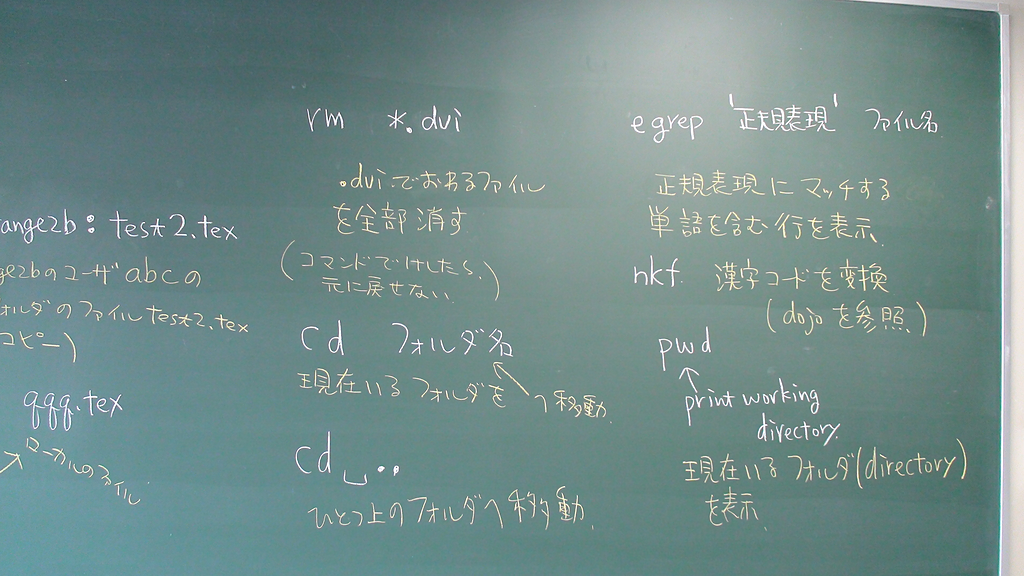 ange2b : test2.tex
ge2bのユーザabcの
ォルダのファイルtest2.tex
コピー)
qqq.tex
ローカルのファイル
rm *.dvi
.dvi.でおわるファイル
を全部消す
(コマンドでけしたら、
元に戻せない.)
cd フォルダ名
現在いるフォルダを
へ移動.
cd␣..
ひとつ上のフォルダへ移動.
egrep '正規表現' ファイル名.
正規表現にマッチする
単語を含む行を表示.
nkf. 漢字コードを変換
(dojoを参照.)
pwd
print working
directory.
現在いるフォルダ(directory)
を表示.